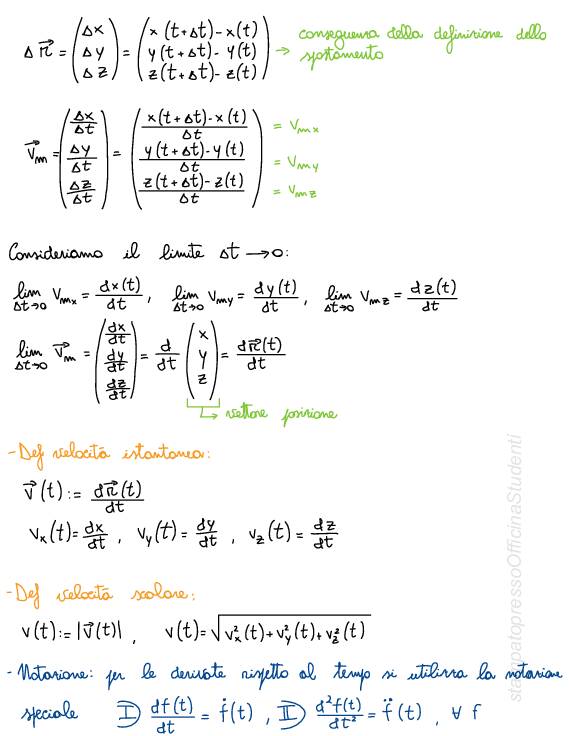 Δr⃗ = (Δx Δy Δz) = (x(t+Δt)-x(t) y(t+Δt)-y(t) z(t+Δt)-z(t)) → conseguenza della definizione dello spostamento
v⃗m = (Δx/Δt Δy/Δt Δz/Δt) = ((x(t+Δt)-x(t))/Δt (y(t+Δt)-y(t))/Δt (z(t+Δt)-z(t))/Δt) = vmx = vmy = vmz
Consideriamo il limite Δt → 0:
lim Δt→0 vmx = dx(t)/dt , lim Δt→0 vmy = dy(t)/dt , lim Δt→0 vmz = dz(t)/dt
lim Δt→0 v⃗m = (dx/dt dy/dt dz/dt) = d/dt (x y z) = dr⃗(t)/dt
↳ vettore posizione
- Def velocità istantanea:
v⃗(t) := dr⃗(t)/dt
vx(t) = dx/dt , vy(t) = dy/dt , vz(t) = dz/dt
- Def velocità scalare:
v(t) := |v⃗(t)| , v(t) = √(vx²(t) + vy²(t) + vz²(t))
- Notazione: per le derivate rispetto al tempo si utilizza la notazione
speciale I) df(t)/dt = ḟ(t) , II) d²f(t)/dt² = f̈(t) , ∀ f
stampatopressoOfficinaStudenti